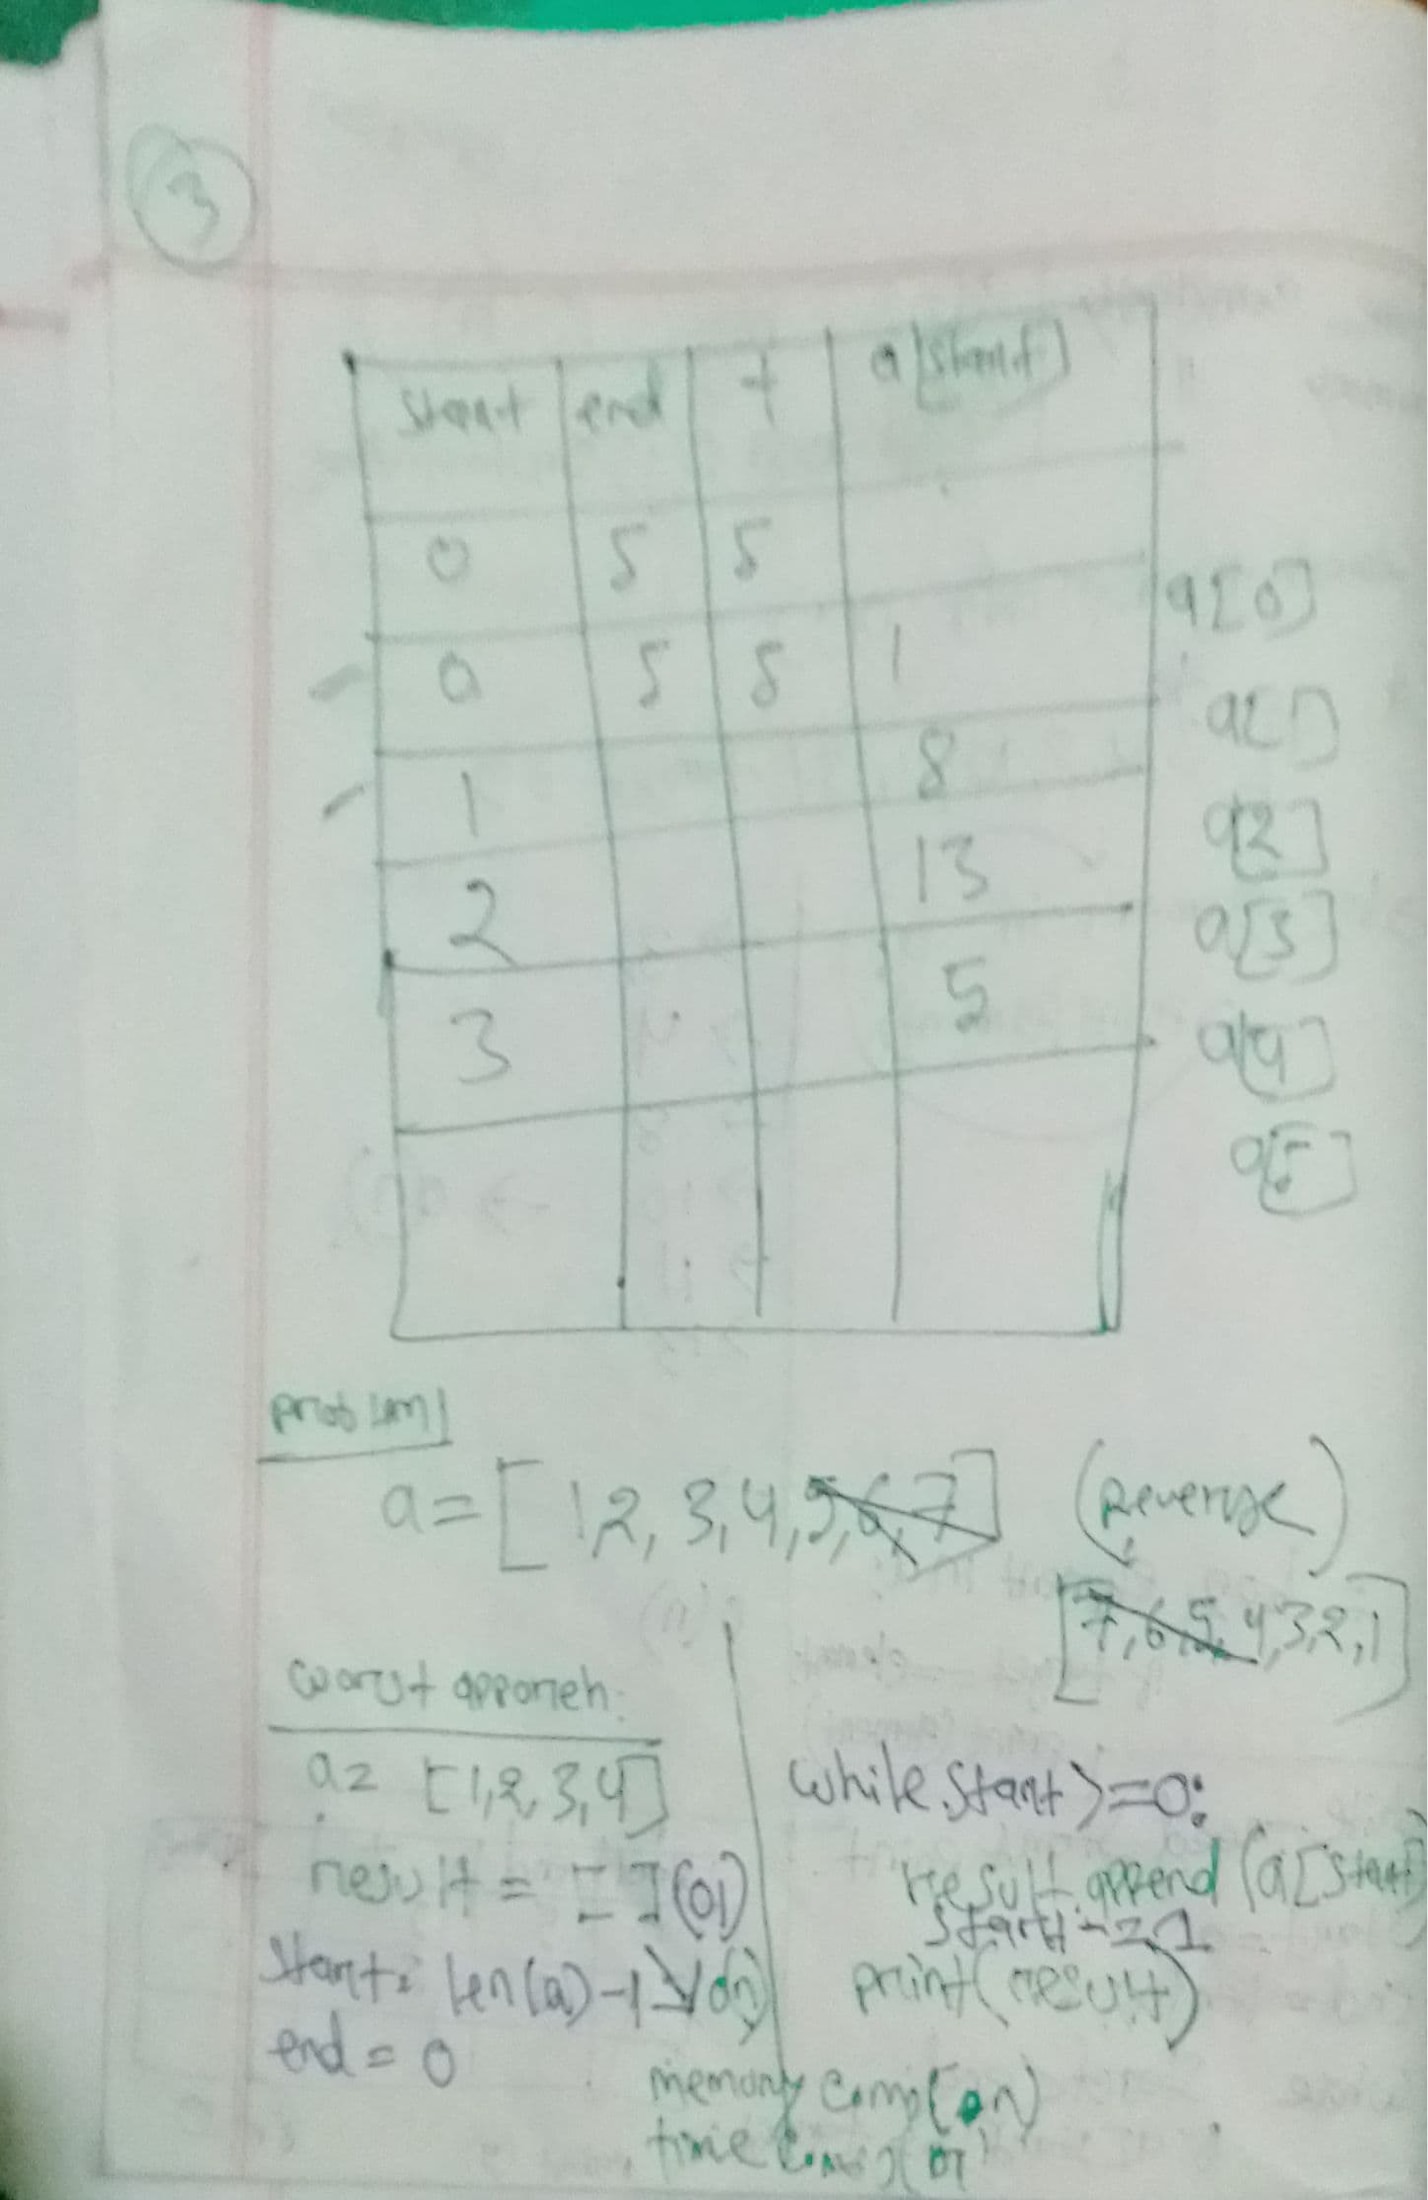 3
start end t a[start]
0 5 5
a[0]
0 5 5 1
a[1]
1 8
a[2]
2 13
a[3]
3 5
a[4]
a[5]
problem 1
a = [1,2,3,4,5,6,7] (Reverse)
[7,6,5,4,3,2,1]
worst approach:
a = [1,2,3,4]
result = [] (01)
start = len(a)-1
end = 0
while start >=0:
result.append (a[start]
start -= 1
print(result)
memory comp(on)
time